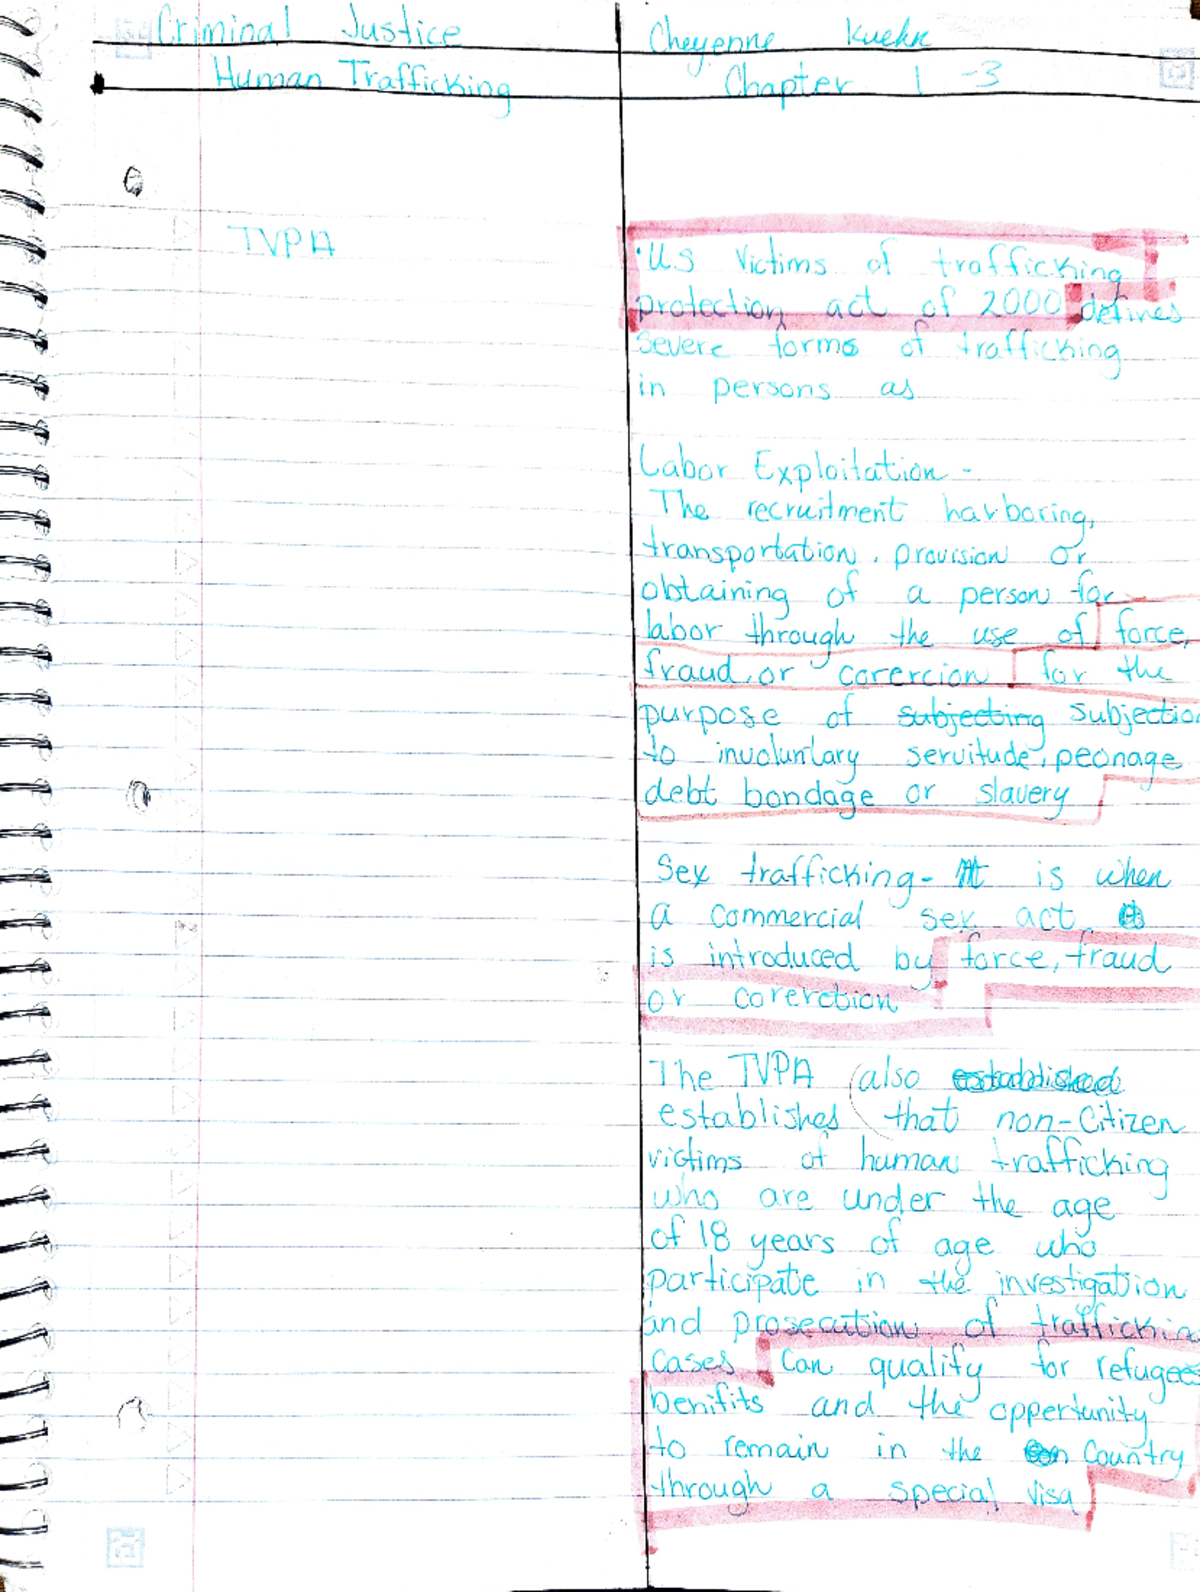 Criminal Justice
Cheyenne Kuehn
Human Trafficking
Chapter 1-3
TVPA
·US Victims of trafficking
protection act of 2000 defines
severe forms of trafficking
in persons as
Labor Exploitation -
The recruitment harboring,
transportation, provision or
obtaining of a person for
labor through the use of force,
fraud, or corercion for the
purpose of subjecting subjection
to involuntary servitude, peonage
debt bondage or slavery
Sex trafficking- It is when
a commercial sex act
is introduced by force, fraud
or corerction
The TVPA also established
establishes that non-Citizen
victims of human trafficking
who are under the age
of 18 years of age who
participate in the investigation
and prosecution of trafficking
cases can qualify for refugees
benifits and the oppertunity
to remain in the Country
through a special visa